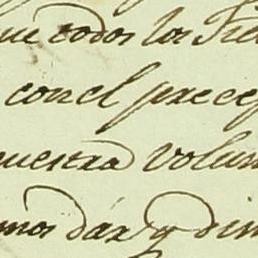 ue todos los Fie
con el precep
nuestra volun
mos dár, y dim